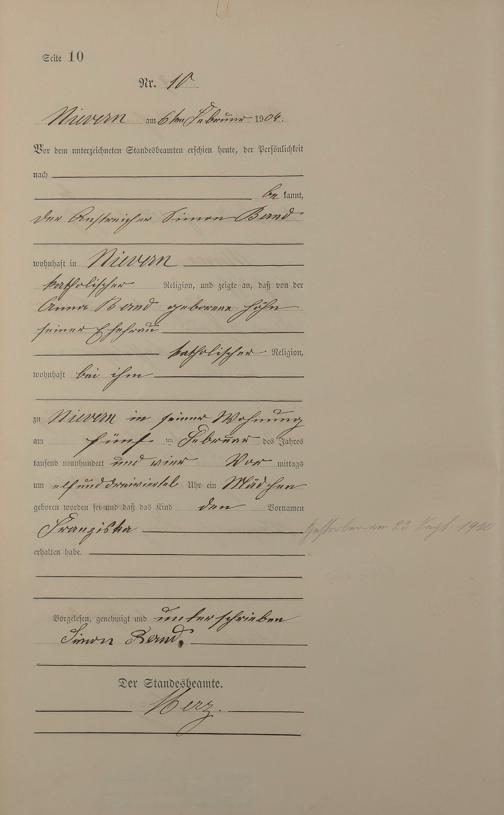 Seite 10
Nr. 10
Nievern am 6ten Februar 1904.
Vor dem unterzeichneten Standesbeamten erschien heute, der Persönlichkeit
nach
be kannt,
der Anstreicher Simon Band
wohnhaft in Nievern
katholischer Religion, und zeigte an, daß von der
Anna Band geborene Höhn
seiner Ehefrau
katholischer Religion,
wohnhaft bei ihm
zu Nievern in seiner Wohnung
am fünf ten Februar des Jahres
tausend neunhundert und vier Vor mittags
um elfunddreiviertel Uhr ein Mädchen
geboren worden sei und daß das Kind den Vornamen
Franziska
Gestorben am 23. Sept.
erhalten habe.
Vorgelesen, genehmigt und unterschrieben
Simon Band.
Der Standesbeamte.
Merz.